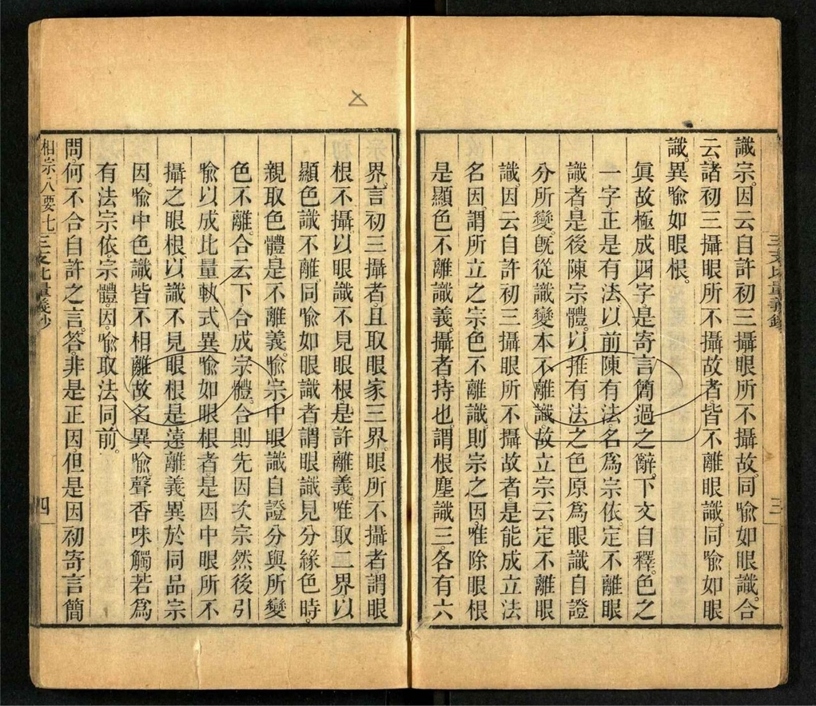 三支比量義鈔
三
識宗。因云自許初三攝眼所不攝故。同喻如眼識。合
云諸初三攝眼所不攝故者皆不離眼識。同喻如眼
識。異喻如眼根。
眞故極成四字是寄言簡過之辭。下文自釋。色之
一字正是有法以前陳有法名爲宗依定不離眼
識者是後陳宗體。以推有法之色原爲眼識自證
分所變旣從識變本不離識故立宗云定不離眼
識因云自許初三攝眼所不攝故者是能成立法
名因謂所立之宗色不離識則宗之因。唯除眼根
是顯色不離識義。攝者持也謂根塵識三各有六
界。言初三攝者。且取眼家三界。眼所不攝者謂眼
根不攝以眼識不見眼根是許離義。唯取二界以
顯色識不離同喻如眼識者謂眼識見分緣色時。
親取色體是不離義。喻宗中眼識自證分與所變
色不離。合云下合成宗體。合則先因次宗然後引
喻以成比量軌式異喻如眼根者是因中眼所不
攝之眼根以識不見眼根是遠離義異於同品宗
因。喻中色識皆不相離故名異喻聲香味觸若爲
有法宗依。宗體。因。喻取法同前。
問何不合自許之言。答非是正因但是因初寄言簡
相宗八要七
三支比量義鈔
四